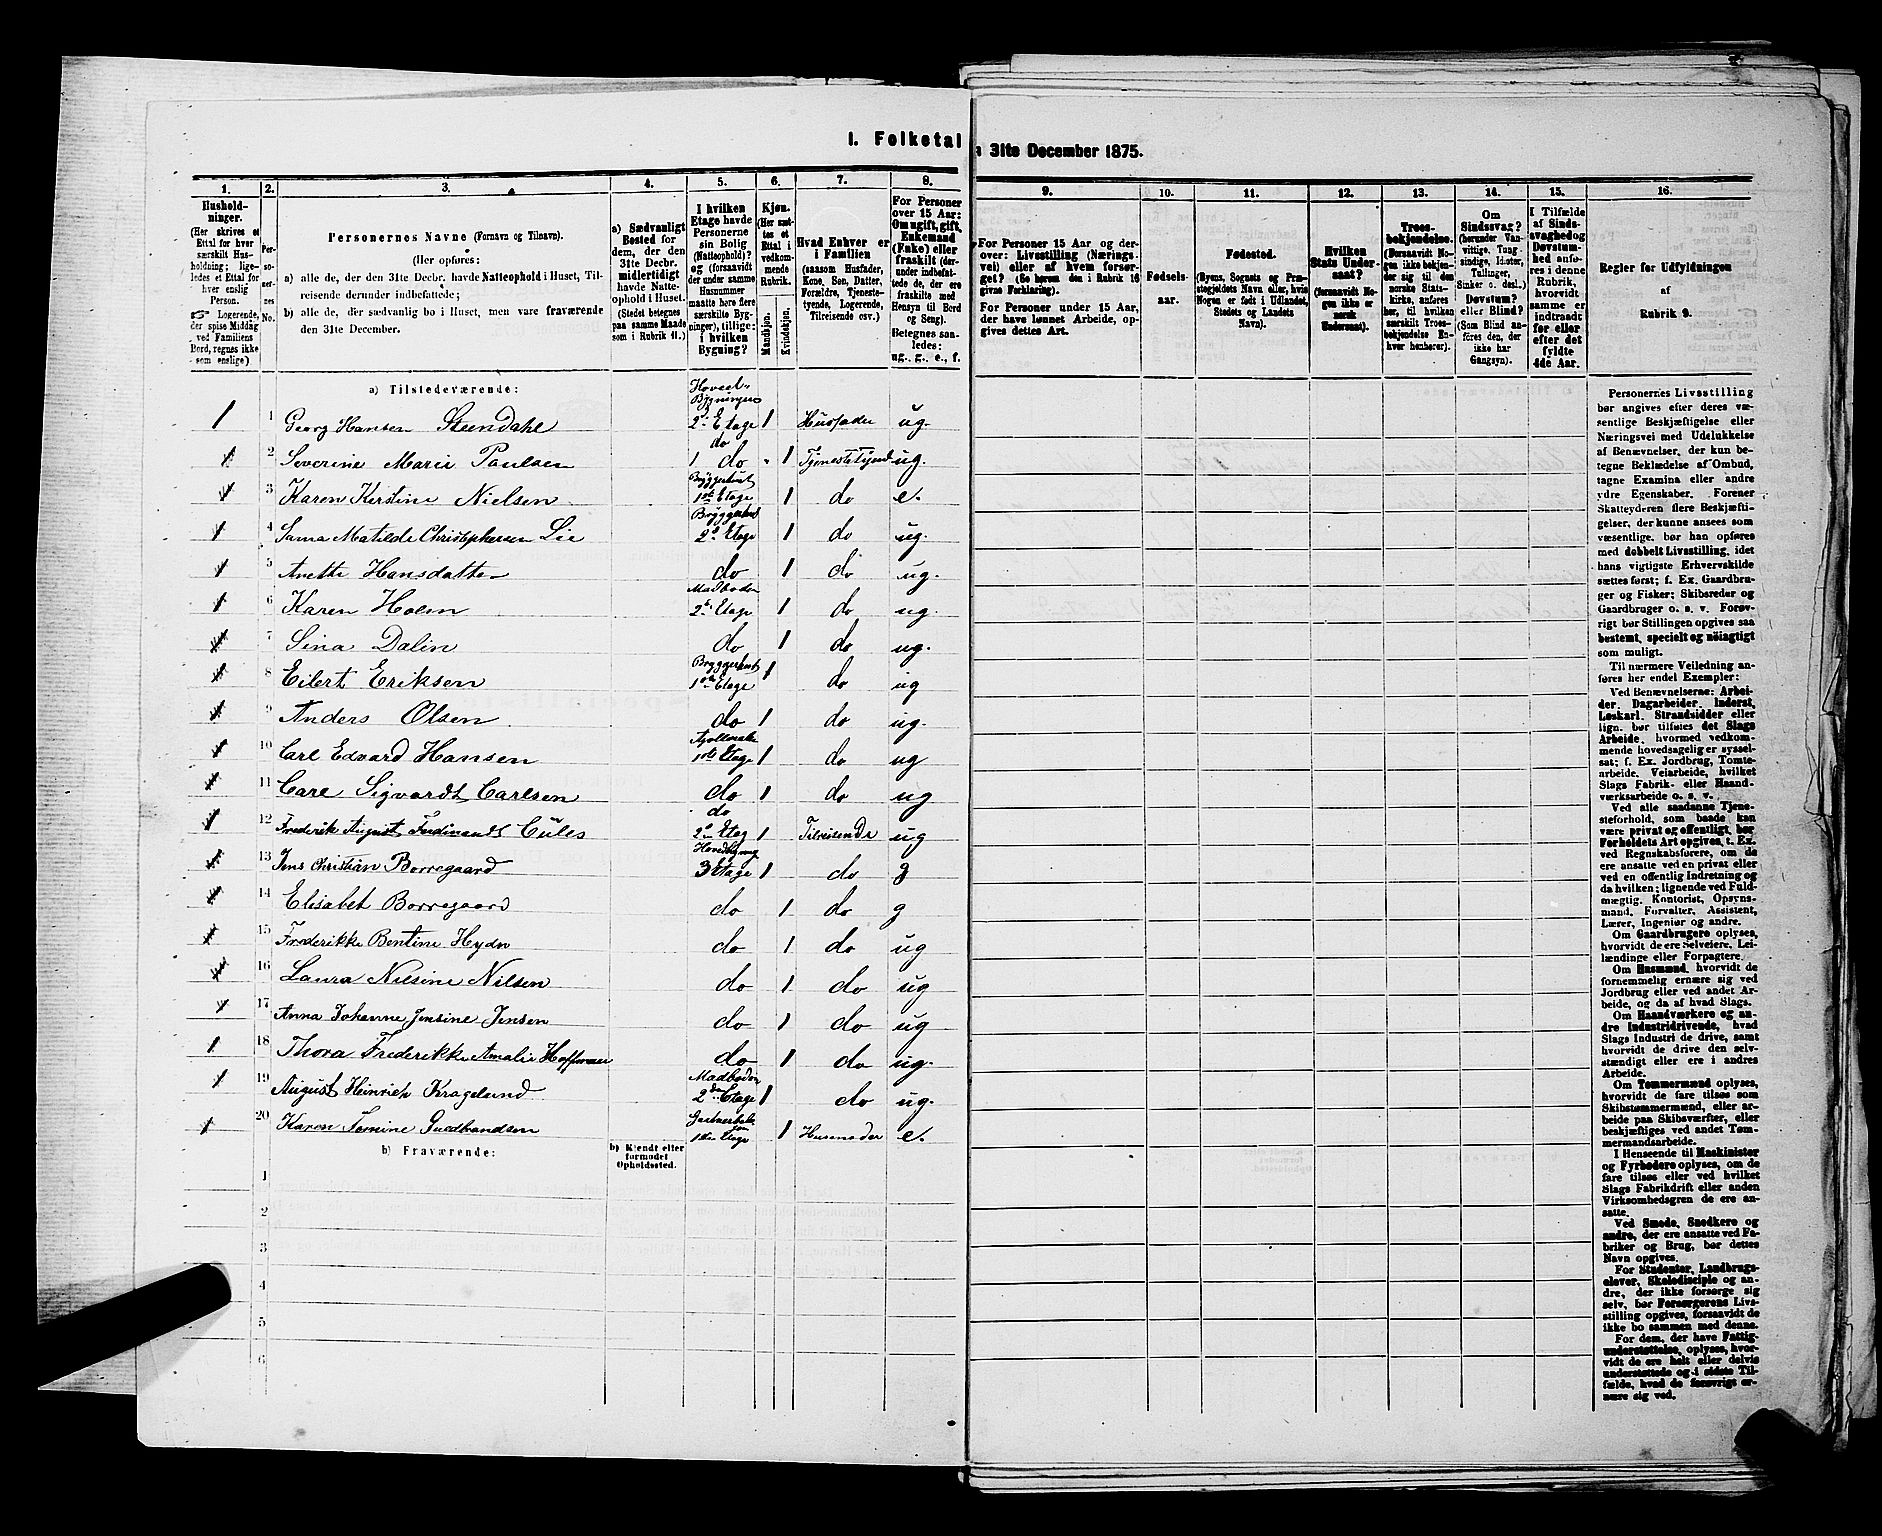 I. Folketal
31te December 1875.
1.
2.
3.
4.
5.
6.
7.
8.
9.
10.
11.
12.
13.
14.
15.
16.
Hushold-
ninger.
(Her skrives et
Ettal for hver
særskilt Hus-
holdning; lige-
ledes et Ettal for
hver enslig
Person.
Logerende,
der spise Middag
ved Familiens
Bord, regnes ikke
som enslige)
Per-
so-
ner-
nes
No.
Personernes Navne (Fornavn og Tilnavn).
(Her opføres:
a) alle de, der den 31te Decbr. havde Natteophold i Huset, Til-
reisende derunder indbefattede;
b) alle de, der sædvanlig bo i Huset, men vare fraværende
den 31te December.
a) Sædvanligt
Bosted for
dem, der den
31te Decbr.
midlertidigt
havde Natte-
ophold i Huset.
(Stedet betegnes
paa samme Maade
som i Rubrik 11.)
I hvilken
Etage havde
Personerne
sin Bolig
(Natteophold)?
og (forsaavidt
der under samme
Husnummer
maatte høre flere
særskilte Byg-
ninger), tillige:
i hvilken
Bygning?
Kjøn.
(Her sæt-
tes et
Ettal i
vedkom-
mende
Rubrik.
Mandkjøn.
Kvindekjøn.
Hvad Enhver er
i Familien
(saasom Husfader,
Kone, Søn, Datter,
Forældre, Tjeneste-
tyende, Logerende,
Tilreisende osv.)
For Personer
over 15 Aar:
Om ugift, gift,
Enkemand
(Enke) eller
fraskilt (der-
under indbefat-
tede de, der ere
fraskilte med
Hensyn til Bord
og Seng).
Betegnes saa-
ledes:
ug., g., e., f.
For Personer 15 Aar og der-
over: Livsstilling (Nærings-
vei) eller af hvem forsør-
get? (Se herom den i Rubrik 16
givne Forklaring).
For Personer under 15 Aar,
der have lønnet Arbeide, op-
gives dettes Art.
Fødsels-
aar.
Fødested.
(Byens, Sognets og Præ-
stegjeldets Navn eller, hvis
Nogen er født i Udlandet,
Stedets og Landets
Navn).
Hvilken
Stats Under-
saat?
(forsaavidt No-
gen ikke er
norsk
Undersaat).
Troes-
bekjendelse.
(Forsaavidt No-
gen ikke bekjen-
der sig til den
norske Stats-
kirke, anføres
her, til hvilken
særskilt Troes-
bekjendelse En-
hver henhører).
Om
Sindssvag?
(herunder Van-
vittige, Tung-
sindige, Idioter,
Tullinger,
Sinker o. desl.),
Døvstum?
eller Blind?
(Som Blind an-
føres den, der
ikke har
Gangsyn).
I Tilfælde
af Sinds-
svaghed og
Døvstum-
hed anfø-
res i denne
Rubrik,
hvorvidt
samme er
indtraadt
før eller
efter det
fyldte
4de Aar.
Regler for Udfyldningen
af
Rubrik 9.
a) Tilstedeværende:
1 1 Georg Hansen Steendahl Hoved-Bygningen 2den Etage 1 Husfader ug.
1 2 Severine Marie Paulsen do 1 do 1 Tjenestetyende ug.
1 3 Karen Kirstine Nielsen Bryggerhuset 1ste Etage 1 do e.
1 4 Matilde Christophersen Lie Bryggerhus 2d Etage 1 do ug.
1 5 Anette Hansdatter do 1 do ug.
1 6 Karen Holm Madboden 2. Etage 1 do ug.
1 7 Sina Dalin do 1 do ug.
1 8 Eilert Eriksen Bryggerhus 1ste Etage 1 do ug
1 9 Anders Olsen do 1 do ug.
1 10 Carl Edvard Hansen 1ste Etage 1 do ug
1 11 Carl Sigvardt Carlsen do 1 do ug
1 12 Frederik August Ferdinandt do 2d Etag 1 Tilreisende ug
1 13 Jens Christian Borregaard Hovedbygning 3 Etage 1 do g
1 14 Elisabet Borregaard do 1 do g
1 15 Frederikke Bentine Hydn do 1 do ug
1 16 Laura Nilsine Nilsen do 1 do ug
1 17 Anna Johanne Jensine Jensen do 1 do ug
1 18 Thora Frederikke Amalie Hoffmann do 1 do ug.
1 19 August Heinrich Kragelund Madboden 2den Etage 1 do ug.
1 20 Karen Guldbrandsen 1ste Etage 1 Husmoder e.
b) Fraværende:
b) Kjendt eller
formodet
Opholdssted.
1
2
3
4
5
6
Personernes Livsstilling
bør angives efter deres væ-
sentlige Beskjæftigelse eller
Næringsvei med Udelukkelse
af Benævnelser, der kun be-
tegne Beklædelse af Ombud,
tagne Examina eller andre
ydre Egenskaber. Forener
Skatteyderen flere Beskjæfti-
gelser, der kunne ansees som
væsentlige, bør han opføres
med dobbelt Livsstilling, idet
hans vigtigste Erhvervskilde
sættes først; f. Ex. Gaardbru-
ger og Fisker; Skibsreder og
Gaardbruger o. s. v. Forøv-
rigt bør Stillingen opgives saa
bestemt, specielt og nöiagtigt
som muligt.
Til nærmere Veiledning an-
føres her endel Exempler:
Ved Benævnelserne: Arbei-
der, Dagarbeider, Inderst,
Løskarl, Strandsidder eller
lign. bør tilføies det Slags
Arbeide, hvormed vedkom-
mende hovedsagelig er syssel-
sat; f. Ex. Jordbrug, Tomte-
arbeide, Veiarbeide, hvilket
Slags Fabrik- eller Haand-
værksarbeide o. s. v.
Ved alle saadanne Tjene-
steforhold, som baade kan
være privat og offentligt, bør
Forholdets Art opgives, t. Ex.
ved Regnskabsførere, om de
ere ansatte ved en privat eller
ved en offentlig Indretning og
da hvilken; lignende ved Fuld-
mægtig, Kontorist, Opsyns-
mand, Forvalter, Assistent,
Lærer, Ingeniør og andre.
Om Gaardbrugere oplyses,
hvorvidt de ere Selveiere, Lei-
lændinge eller Forpagtere.
Om Husmænd, hvorvidt de
fornemmelig ernære sig ved
Jordbrug eller ved andet Ar-
beide, og da af hvad Slags.
Om Haandværkere og an-
dre Industridrivende, hvad
Slags Industri de drive, samt
hvorvidt de drive den selv-
stændigt eller ere i andres
Arbeide.
Om Tømmermænd oplyses,
hvorvidt de fare tilsøs som
Skibstømmermænd, eller ar-
beide paa Skibsværfter, eller
beskjæftiges ved andet Tøm-
mermandsarbeide.
I Henseende til Maskinister
og Fyrbødere oplyses, om de
fare tilsøs eller ved hvilket
Slags Fabrikdrift eller anden
Virksomhedsgren de ere an-
satte.
Ved Smede, Snedkere og
andre, der ere ansatte ved Fa-
briker og Brug, bør dettes
Navn opgives.
For Studenter, Landbrugs-
elever, Skoledisciple og an-
dre, der ikke forsørge sig
selv, bør Forsørgerens Livs-
stilling opgives, forsaavidt de
ikke bo sammen med denne.
For dem, der have Fattig-
understøttelse, oplyses, hvor-
vidt de ere helt eller delvis
understøttede og i sidste Til-
fælde, hvad de forøvrigt er-
nære sig ved.